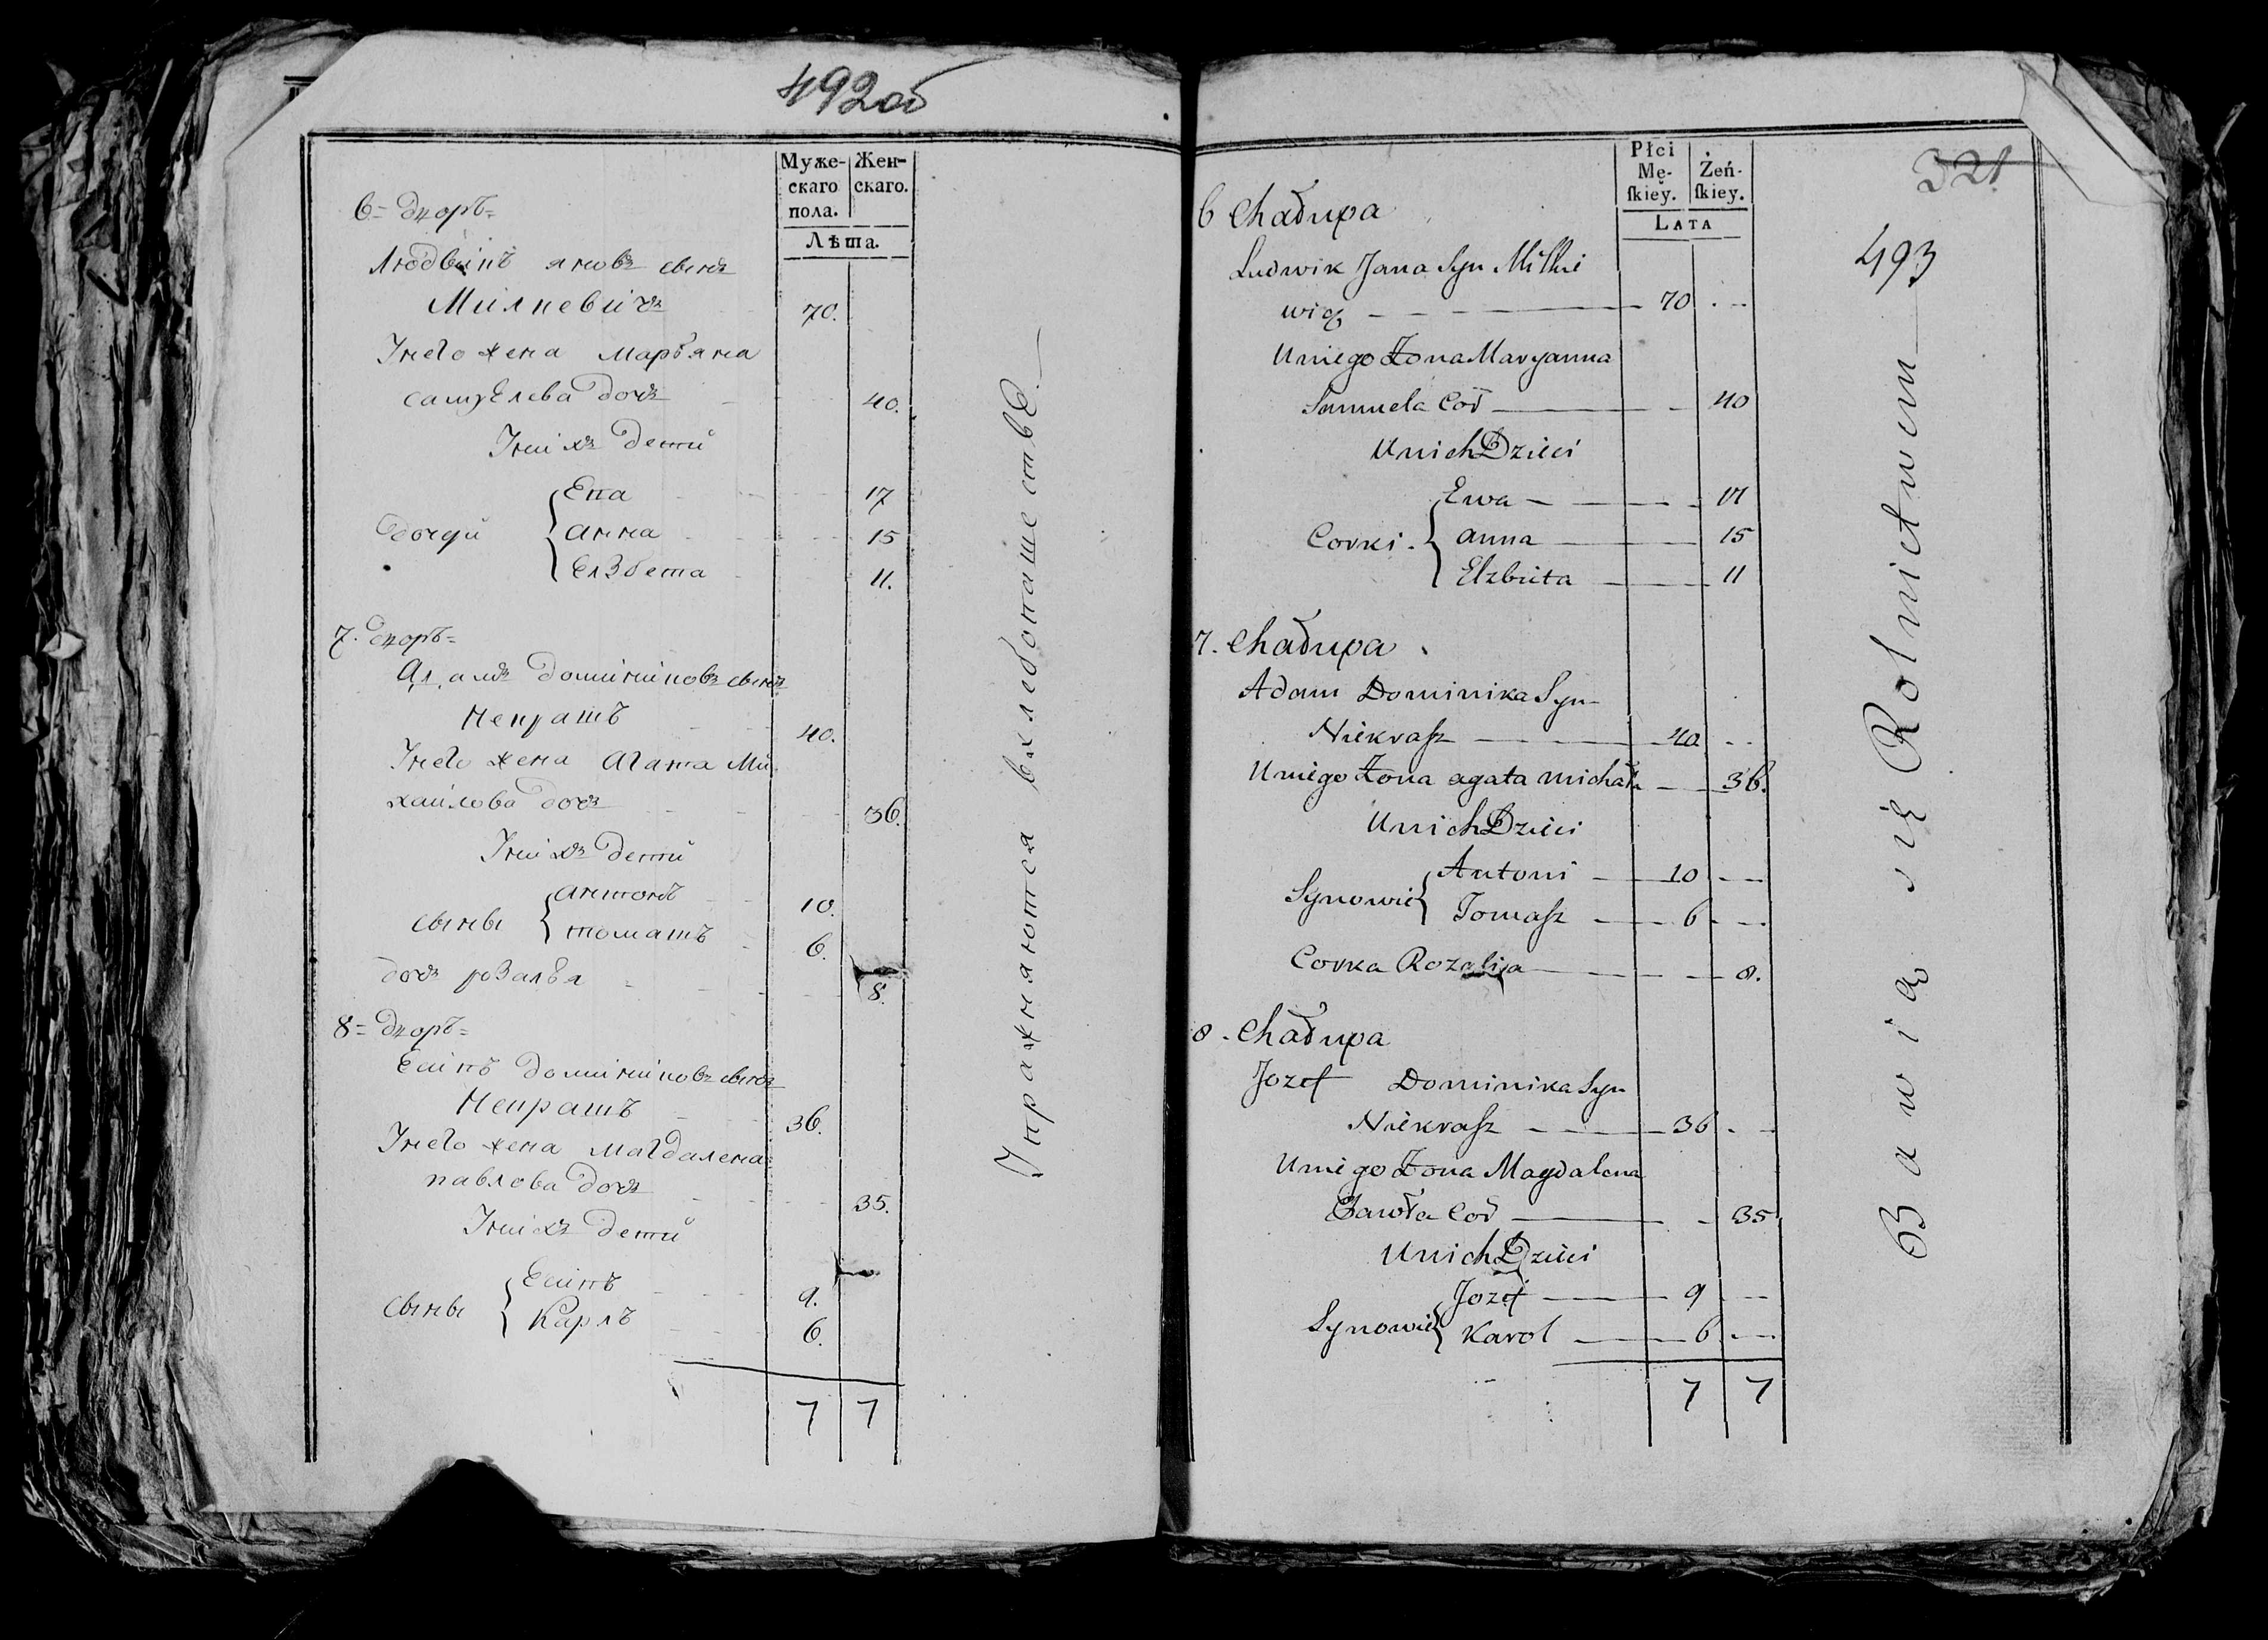 492об
Муже-
скаго
пола.
Жен-
скаго.
Лѣта.
6= Дворъ=
Людвикъ яновъ сынъ
Милкевичъ 70.
Унего жена марьяна
самуелева дочь 40.
Унихъ дети
дочери
Ева 17
анна 15
Елзбета 11.
7. Дворъ=
Адамъ доминиковъ сынъ
Некрашъ 40.
Унего жена Агата Ми
хаилова дочь 36.
Унихъ дети
сыны
антонъ 10.
томашъ 6.
дочь розалья 8.
8= Дворъ=
Есипъ доминиковъ сынъ
Некрашъ 36.
Унего жена магдалена
павлова дочь 35.
Унихъ дети
сыны
Есипъ 9.
Карлъ 6.
7 7
Упражняются вхлебопашестве.
Płci
Mę-
ſkiey.
Żeń-
ſkiey.
LATA
321
493
6 Chałupa
Ludwik Jana Syn Milkie
wicz 70
Uniego Żona Maryanna
Samuela Cor 40
Unich Dzieci
Corki.
Ewa 17
anna 15
Elzbieta 11
7. Chałupa
Adam Dominika Syn
Niekraſz 40
Uniego Żona agata michała 36.
Unich Dzieci
Synowie
Antoni 10
Tomaſz 6
Corka Rozalija 8.
8. Chałupa
Jozef Dominika Syn
Niekraſz 36
Uniego Żona Magdalena
Pawła Cor 35
Unich Dzieci
Synowie
Jozef 9
Karol 6
7 7
Bawią się Rolnictwem